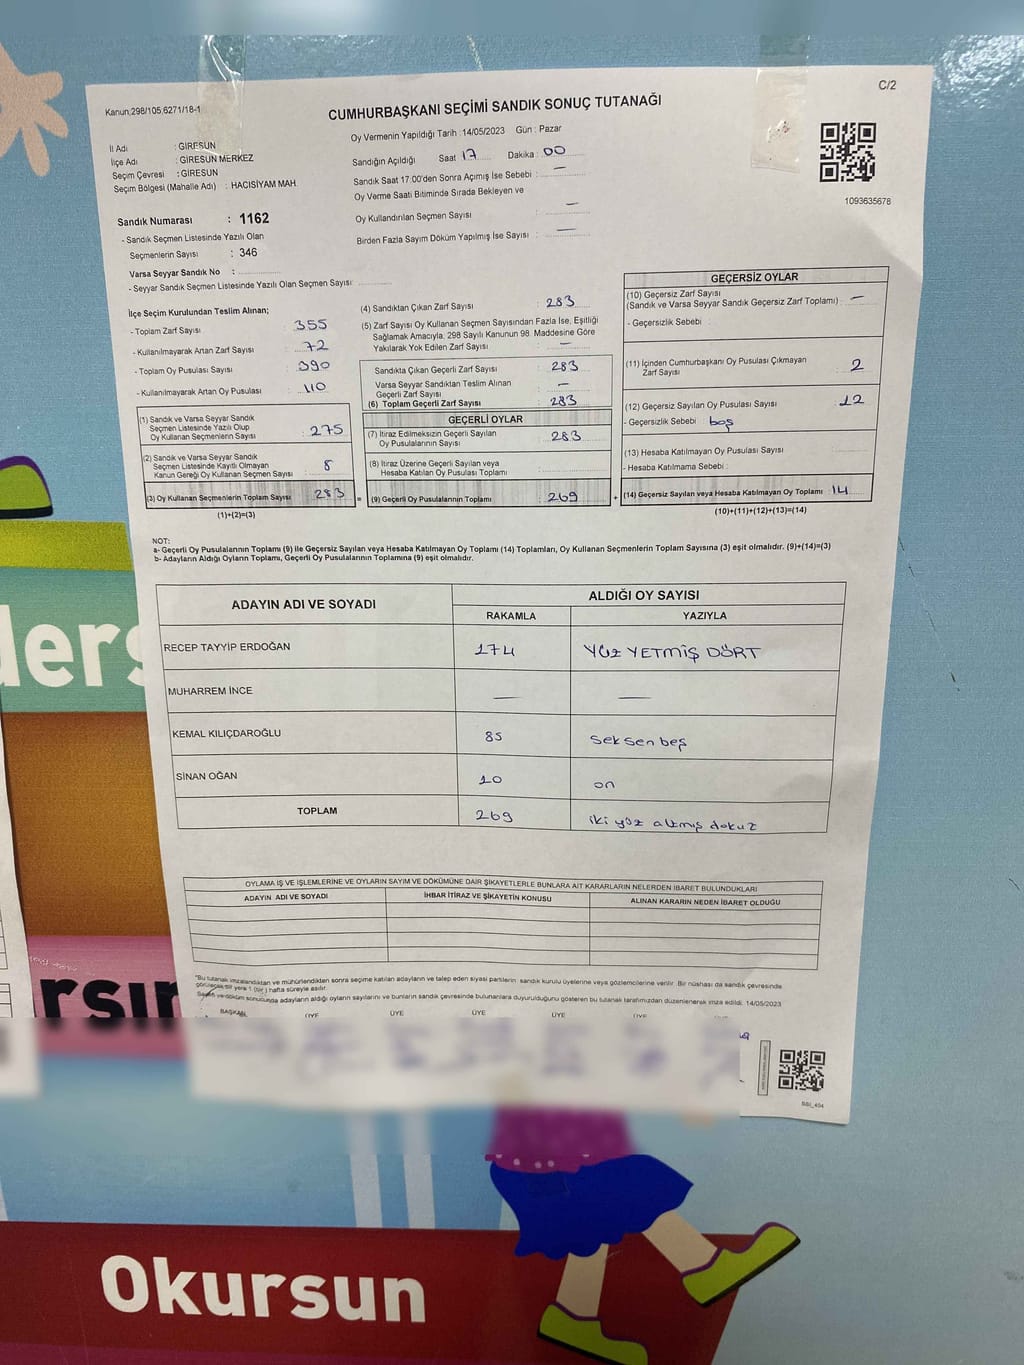 C/2
Kanun:298/105,6271/18-1
CUMHURBAŞKANI SEÇİMİ SANDIK SONUÇ TUTANAĞI
Oy Vermenin Yapıldığı Tarih : 14/05/2023 Gün : Pazar
İl Adı : GİRESUN
İlçe Adı : GİRESUN MERKEZ
Seçim Çevresi : GİRESUN
Seçim Bölgesi (Mahalle Adı) : HACISİYAM MAH.
Sandığın Açıldığı Saat 17 Dakika : 00
Sandık Saat 17:00'den Sonra Açımış İse Sebebi : —
Oy Verme Saati Bitiminde Sırada Bekleyen ve
Oy Kullandırılan Seçmen Sayısı : —
Birden Fazla Sayım Döküm Yapılmış İse Sayısı : —
1093635678
Sandık Numarası : 1162
- Sandık Seçmen Listesinde Yazılı Olan
Seçmenlerin Sayısı : 346
Varsa Seyyar Sandık No :
- Seyyar Sandık Seçmen Listesinde Yazılı Olan Seçmen Sayısı:
İlçe Seçim Kurulundan Teslim Alınan;
- Toplam Zarf Sayısı : 355
- Kullanılmayarak Artan Zarf Sayısı : 72
- Toplam Oy Pusulası Sayısı : 390
- Kullanılmayarak Artan Oy Pusulası : 110
(1) Sandık ve Varsa Seyyar Sandık
Seçmen Listesinde Yazılı Olup
Oy Kullanan Seçmenlerin Sayısı : 275
(2) Sandık ve Varsa Seyyar Sandık
Seçmen Listesinde Kayıtlı Olmayan
Kanun Gereği Oy Kullanan Seçmen Sayısı : 8
(3) Oy Kullanan Seçmenlerin Toplam Sayısı : 283
(1)+(2)=(3)
(4) Sandıktan Çıkan Zarf Sayısı : 283
(5) Zarf Sayısı Oy Kullanan Seçmen Sayısından Fazla İse, Eşitliği
Sağlamak Amacıyla; 298 Sayılı Kanunun 98. Maddesine Göre
Yakılarak Yok Edilen Zarf Sayısı : —
Sandıkta Çıkan Geçerli Zarf Sayısı : 283
Varsa Seyyar Sandıktan Teslim Alınan
Geçerli Zarf Sayısı : —
(6) Toplam Geçerli Zarf Sayısı : 283
GEÇERLİ OYLAR
(7) İtiraz Edilmeksizin Geçerli Sayılan
Oy Pusulalarının Sayısı : 283
(8) İtiraz Üzerine Geçerli Sayılan veya
Hesaba Katılan Oy Pusulası Toplamı :
= (9) Geçerli Oy Pusulalarının Toplamı : 269 +
GEÇERSİZ OYLAR
(10) Geçersiz Zarf Sayısı
(Sandık ve Varsa Seyyar Sandık Geçersiz Zarf Toplamı) : —
- Geçersizlik Sebebi :
(11) İçinden Cumhurbaşkanı Oy Pusulası Çıkmayan
Zarf Sayısı : 2
(12) Geçersiz Sayılan Oy Pusulası Sayısı : 12
- Geçersizlik Sebebi : boş
(13) Hesaba Katılmayan Oy Pusulası Sayısı :
- Hesaba Katılmama Sebebi :
(14) Geçersiz Sayılan veya Hesaba Katılmayan Oy Toplamı : 14
(10)+(11)+(12)+(13)=(14)
NOT:
a- Geçerli Oy Pusulalarının Toplamı (9) ile Geçersiz Sayılan veya Hesaba Katılmayan Oy Toplamı (14) Toplamları, Oy Kullanan Seçmenlerin Toplam Sayısına (3) eşit olmalıdır. (9)+(14)=(3)
b- Adayların Aldığı Oyların Toplamı, Geçerli Oy Pusulalarının Toplamına (9) eşit olmalıdır.
ADAYIN ADI VE SOYADI ALDIĞI OY SAYISI
RAKAMLA YAZIYLA
RECEP TAYYİP ERDOĞAN 174 YÜZ YETMİŞ DÖRT
MUHARREM İNCE — —
KEMAL KILIÇDAROĞLU 85 seksen beş
SİNAN OĞAN 10 on
TOPLAM 269 iki yüz altmış dokuz
OYLAMA İŞ VE İŞLEMLERİNE VE OYLARIN SAYIM VE DÖKÜMÜNE DAİR ŞİKAYETLERLE BUNLARA AİT KARARLARIN NELERDEN İBARET BULUNDUKLARI
ADAYIN ADI VE SOYADI İHBAR İTİRAZ VE ŞİKAYETİN KONUSU ALINAN KARARIN NEDEN İBARET OLDUĞU
*Bu tutanak imzalandıktan ve mühürlendikten sonra seçime katılan adayların ve talep eden siyasi partilerin sandık kurulu üyelerine veya gözlemcilerine verilir. Bir nüshası da sandık çevresinde
görülecek bir yere 1 (bir) hafta süreyle asılır.
Seçim ve döküm sonucunda adayların aldığı oyların sayılarını ve bunların sandık çevresinde bulunanlara duyurulduğunu gösteren bu tutanak tarafımızdan düzenlenerek imza edildi. 14/05/2023
BAŞKAN ÜYE ÜYE ÜYE ÜYE ÜYE
SSI_404
ders
rsın
Okursun